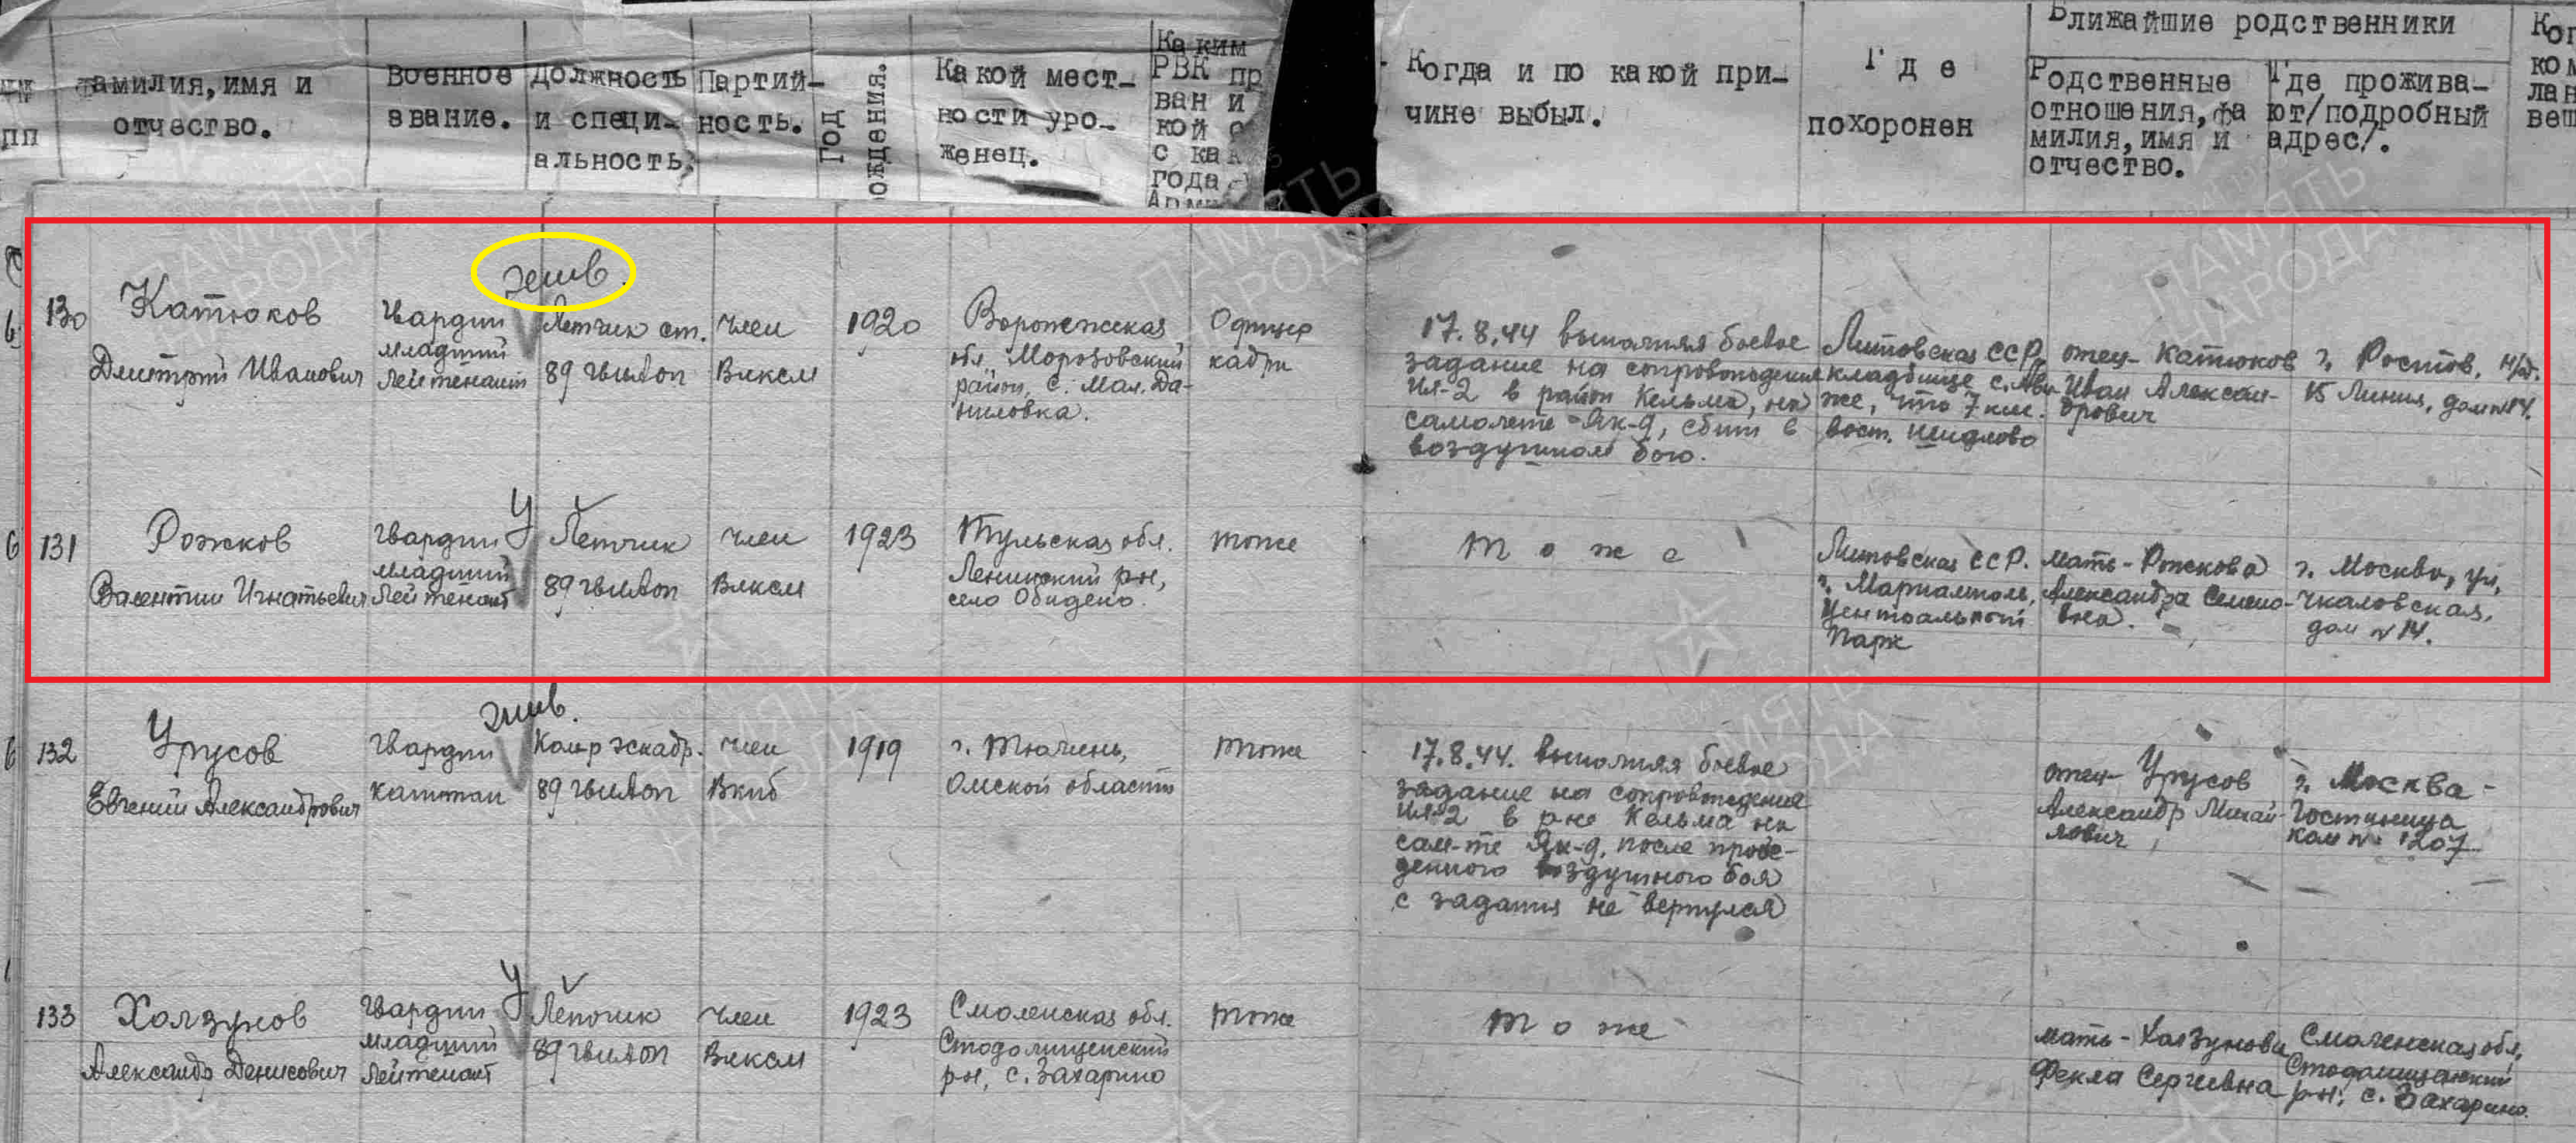 пп
Фамилия, имя и
отчество.
Военное
звание.
Должность
и специ-
альность.
Партий-
ность.
Год
рождения.
Какой мест-
ности уро-
женец.
Каким
РВК пр
ван и
кой с
с как
года
Арми
Когда и по какой при-
чине выбыл.
Где
похоронен
Ближайшие родственники
Родственные
отношения, фа
милия, имя и
отчество.
Где прожива-
ют/подробный
адрес/.
Ког
ком
лан
вещ
130
Катюков
Дмитрий Иванович
Гвардии
младший
лейтенант
жив.
Летчик ст.
89 гвиап
член
Влксм
1920
Воронежская
обл. Морозовский
район, с. Мал. Да-
ниловка.
Офицер
кадры
17.8.44 выполняя боевое
задание на сопровождение
Ил-2 в район Кельма, на
самолете Як-9, сбит в
воздушном бою.
Литовская ССР,
кладбище с.
же, что 7 км.
вост. Шидлово
отец- Катюков
Иван Алексан-
дрович
г. Ростов, н/д.
15 Линия, дом №14.
131
Рожков
Валентин Игнатьевич
гвардии
младший
лейтенант
У
Летчик
89 гвиап
член
Влксм
1923
Тульская обл.
Ленинский р-н,
село Обидено.
тоже
Тоже
Литовская ССР.
г. Мариамполь,
Центральный
Парк
мать- Рожкова
Александра Семено-
вна.
г. Москва, ул,
Чкаловская,
дом №14.
132
Урусов
Евгений Александрович
гвардии
капитан
жив.
Комр эскадр.
89 гвиап
член
Вкпб
1919
г. Тюмень,
Омской области
тоже
17.8.44. выполняя боевое
задание на сопровождение
Ил-2 в р-не Кельма на
сам-те Як-9, после прове-
денного воздушного боя
с задания не вернулся
отец- Урусов
Александр Михай-
лович
г. Москва -
Гостиница
ком № 1207
133
Холзунов
Александр Денисович
гвардии
младший
лейтенант
У
Летчик
89 гвиап
член
Влксм
1923
Смоленская обл.
Стодолищенский
р-н, с. Захарино
тоже
Тоже
мать- Холзунова
Фекла Сергеевна
Смоленская обл,
Стодолищенский
р-н, с. Захарино.
ПАМЯТЬ
НАРОДА